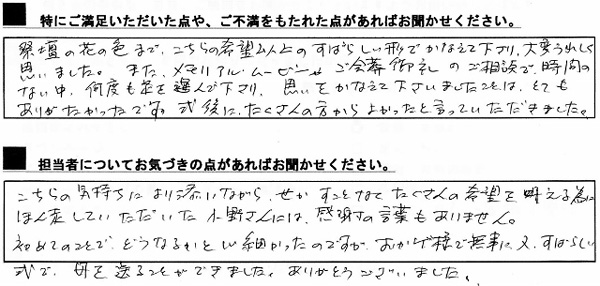 特にご満足いただいた点や、ご不満をもたれた点があればお聞かせください。
祭壇の花の色まで、こちらの希望以上のすばらしい形でかなえて下さり、大変うれしく
思いました。また、メモリアル・ムービーやご会葬御礼のご相談で、時間の
ない中、何度も足を運んで下さり、思いをかなえて下さいましたことは、とても
ありがたかったです。式後に、たくさんの方からよかったと言っていただきました。
担当者についてお気づきの点があればお聞かせください。
こちらの気持ちにより添いながら、せかすことなく、たくさんの希望を叶える為に
ほん走していただいた小野さんには、感謝の言葉もありません。
初めてのことで、どうなるかと心細かったのですが、おかげ様で無事に、又、すばらしい
式で、母を送ることができました。ありがとうございました。